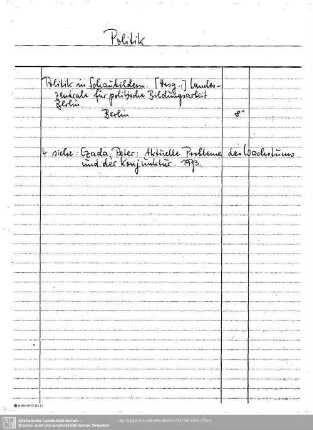 Politik
Politik in Schaubildern. [Hrsg.:] Landes-
zentrale für politische Bildungsarbeit
Berlin
Berlin 8°
4 siehe: Czada, Peter: Aktuelle Probleme des Wachstums
und der Konjunktur. 1973.
Sächsische Landesbibliothek -
Staats- und Universitätsbibliothek Dresden